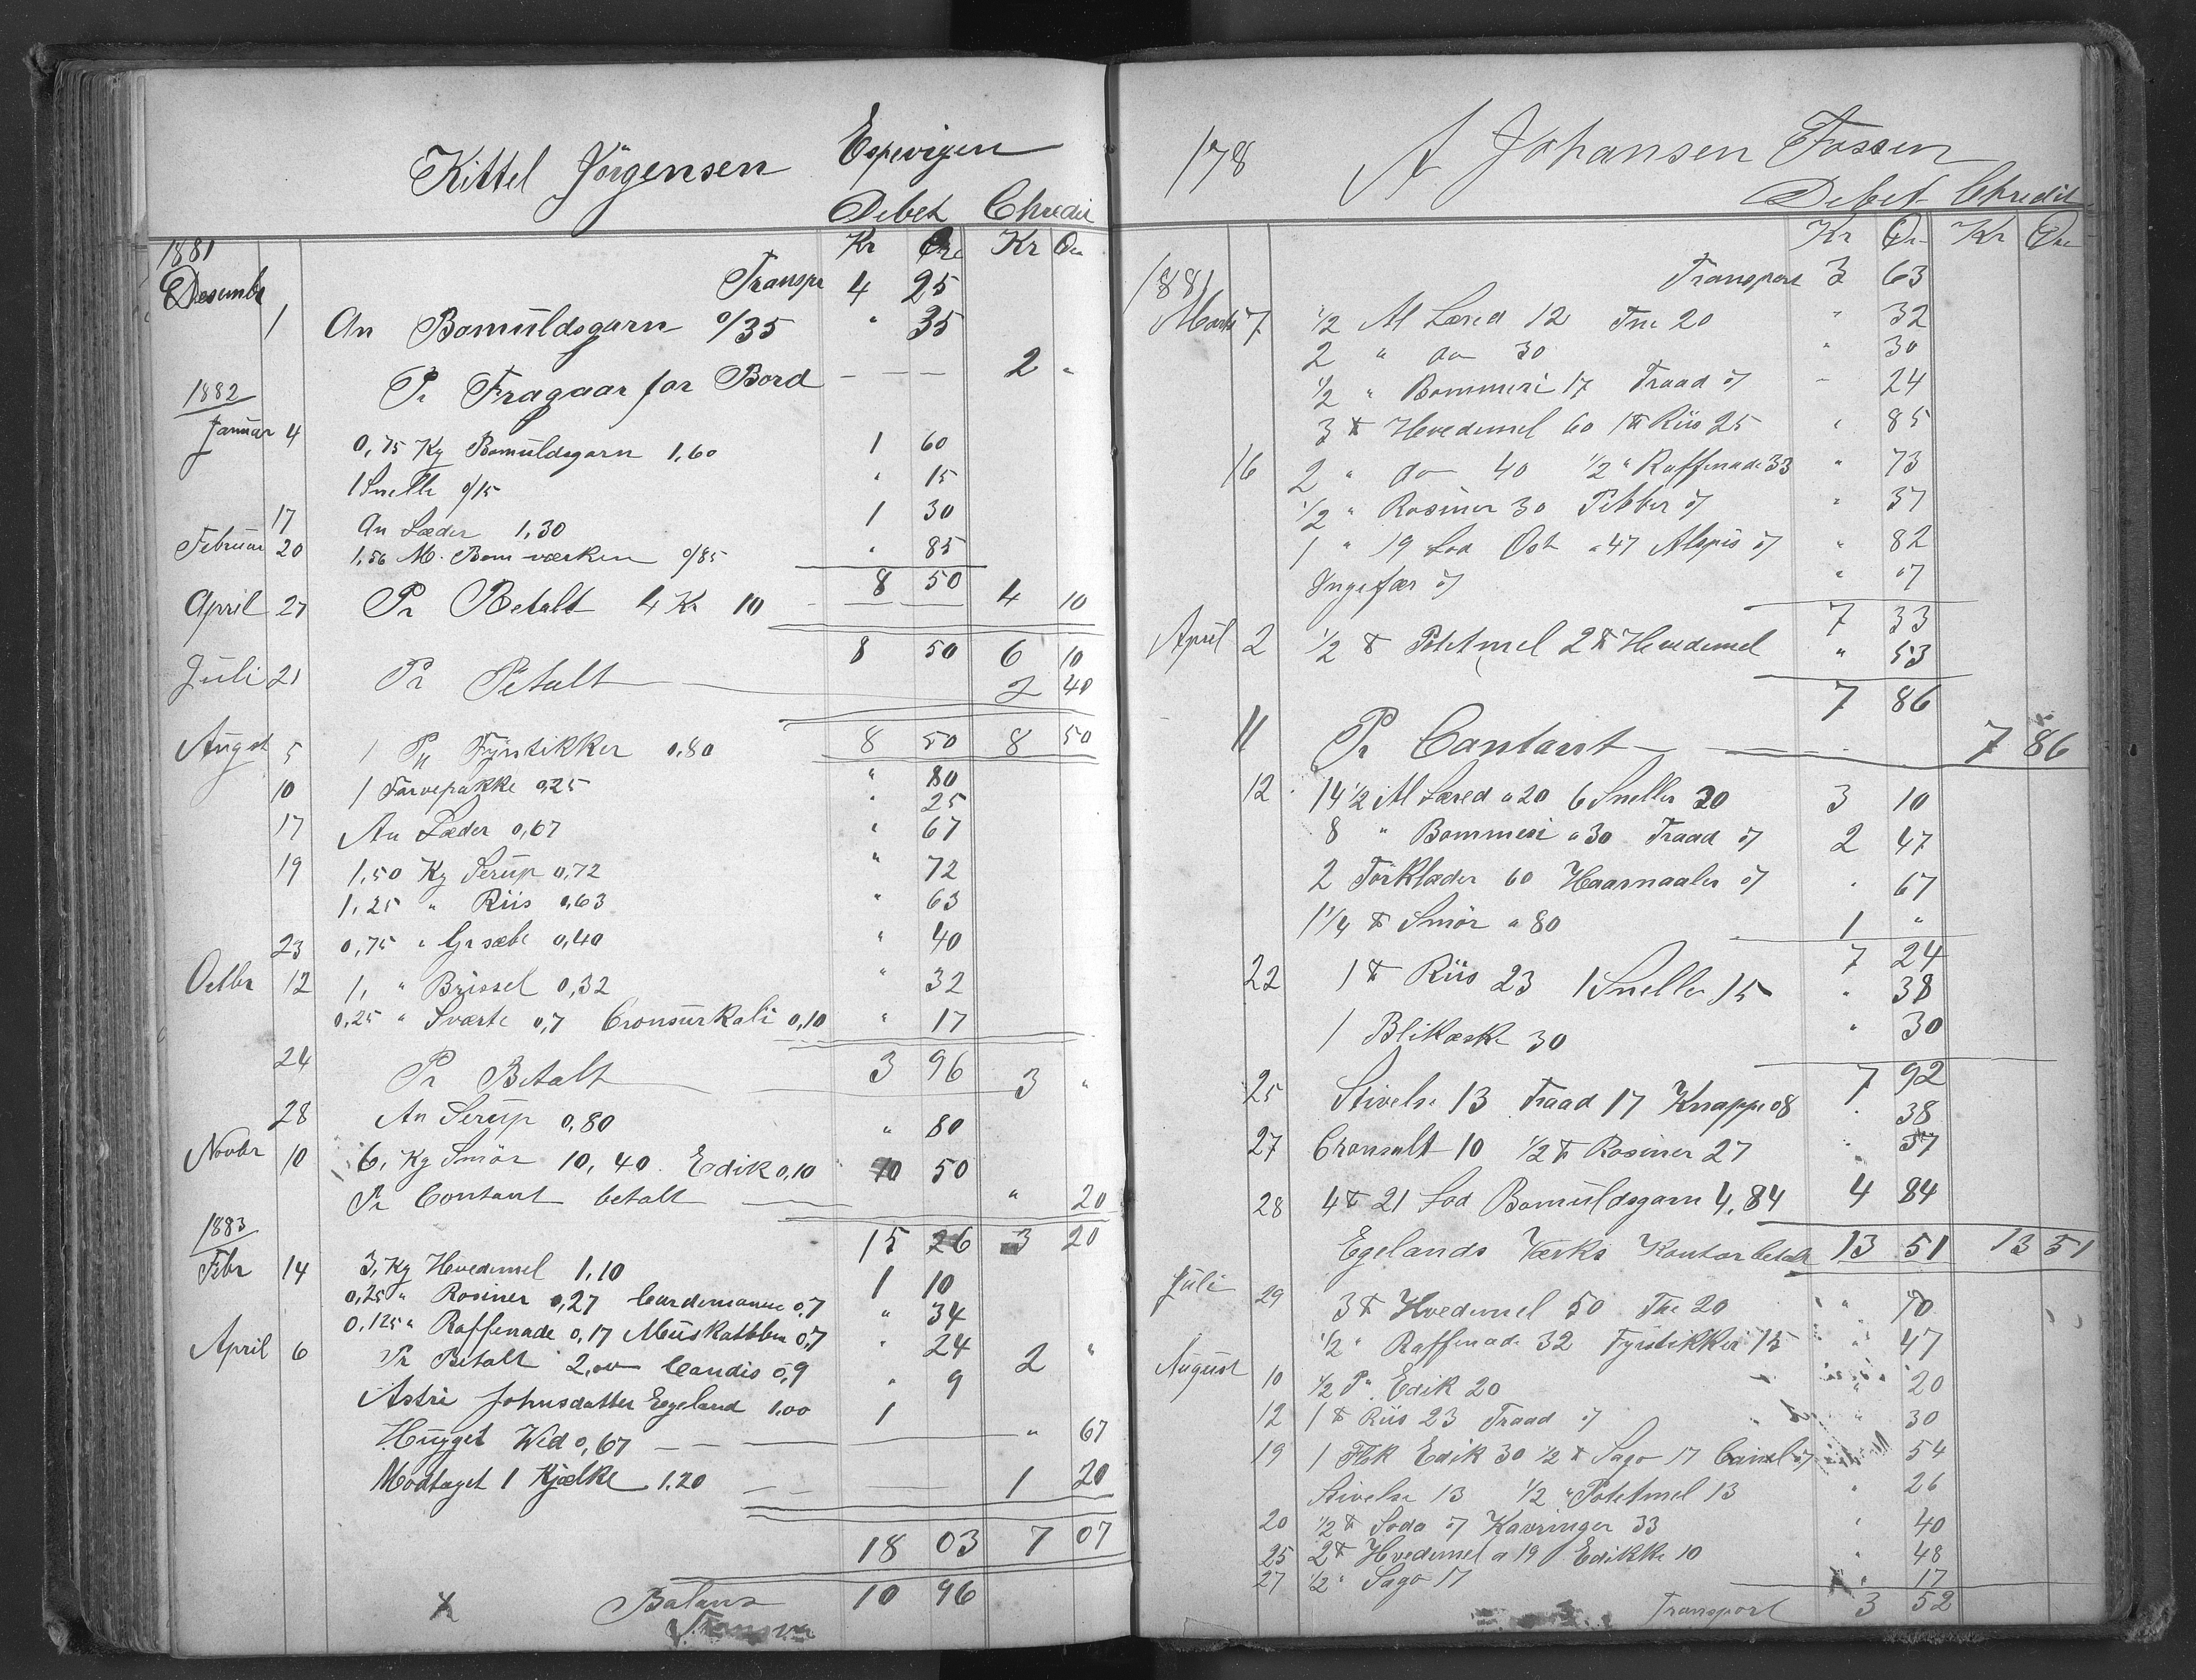 Kittel Jörgensen Espevigen
Debet Chredit
Kr Øre Kr Øre
1881
Desembr Transpr 4 25
1 An Bomuldsgarn 0/35 " 35
Pr Fragaar for Bord — — — 2 "
1882
Januar 4 0,75 Kg Bomuldsgarn 1,60 1 60
1 Snelle 0/15 " 15
17 An Læder 1,30 1 30
Februar 20 1,56 M. Bom værken 0/85 " 85
8 50
April 27 Pr Betalt 4 Kr 10 — — 4 10
8 50 6 10
Juli 21 Pr Betalt 2 40
8 50 8 50
Augst 5 1 Pk Fyrstikker 0,80 " 80
10 1 Farvepakke 0,25 " 25
17 An Læder 0,67 " 67
19 1,50 Kg Serup 0,72 " 72
1,25 " Riis 0,63 " 63
23 0,75 " Gr sæbe 0,40 " 40
Octbr 12 1, " Brissel 0,32 " 32
0,25 " Sværte 0,7 Cronsurkali 0,10 " 17
3 96
24 Pr Betalt 3 "
28 An Serup 0,80 " 80
Novbr 10 6, Kg Smör 10,40 Edik 0,10 10 50
Pr Contant betalt " 20
15 26 3 20
1883
Febr 14 3, Kg Hvedemel 1,10 1 10
0,25 " Rosiner 0,27 Cardemomme 0,7 " 34
0,125 " Raffenade 0,17 Muskatblm 0,7 " 24
April 6 Pr Betalt 2,00 Candis 0,9 " 9 2 "
Astri Johnsdatter Egeland 1.00 1
Hugget Wed 0,67 — — " 67
Modtaget 1 Kjælke 1.20 — — 1 20
18 03 7 07
x Balans 10 96
178 A Johansen Fossen
Debet Chredit
Kr Øre Kr Øre
1881 Transport 3 63
Marts 7 1/2 Al Læred 12 Tne 20 " 32
2 " do 30 " 30
1/2 " Bommesi 17 Traad 07 " 24
3 ℔ Hvedemel 60 1 ℔ Riis 25 " 85
16 2 " do 40 1/2 " Raffenade 33 " 73
1/2 " Rosiner 30 Pebber 07 " 37
1 " 19 Lod Ost a 47 Alspis 07 " 82
Yngefær 07 " 07
7 33
April 2 1/2 ℔ Potetmel 2 ℔ Hvedemel " 53
7 86
11 Pr Contant — 7 86
12 14 1/2 Al Læred a 20 6 Sneller 20 3 10
8 " Bommesi a 30 Traad 07 2 47
2 Törklæder 60 Haarnaaler 07 " 67
1 1/4 ℔ Smör a 80 1 "
7 24
22 1 ℔ Riis 23 1 Snelle 15 " 38
1 Blikæske 30 " 30
7 92
25 Stivelse 13 Traad 17 Knappe 08 " 38
27 Cronsalt 10 1/2 ℔ Rosiner 27 " 37
28 4 ℔ 21 Lod Bomuldsgarn 4,84 4 84
Egelands Værks Kontor betalt 13 51 13 51
Juli 29 3 ℔ Hvedemel 50 The 20 " 70
1/2 " Raffenade 32 Fyrstikker 15 " 47
August 10 1/2 P. Edik 20 " 20
12 1 ℔ Riis 23 Traad 07 " 30
19 1 Flsk Edik 30 1/2 ℔ Sago 17 Canel 07 54
Stivelse 13 1/2 " Potetmel 13 " 26
20 1/2 ℔ Soda 07 Kavringer 33 " 40
25 2 ℔ Hvedemel a 19 Edikke 10 " 48
27 1/2 " Sago 17 " 17
Transport 3 52